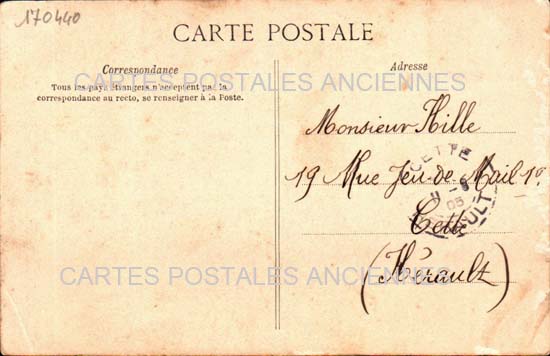 170440
CARTE POSTALE
Correspondance
Tous les pays étrangers n'acceptent pas la
correspondance au recto, se renseigner à la Poste.
Adresse
Monsieur Hille
19 Rue Jeu-de-Mail 19
Cette
(Hérault)
CETTE
05
HÉRAULT
CARTES POSTALES ANCIENNES
CARTES POSTALES ANCIENNES